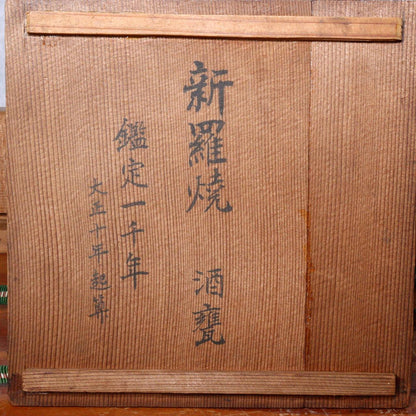 新羅燒 酒甕
鑑定一千年
大正十年起算